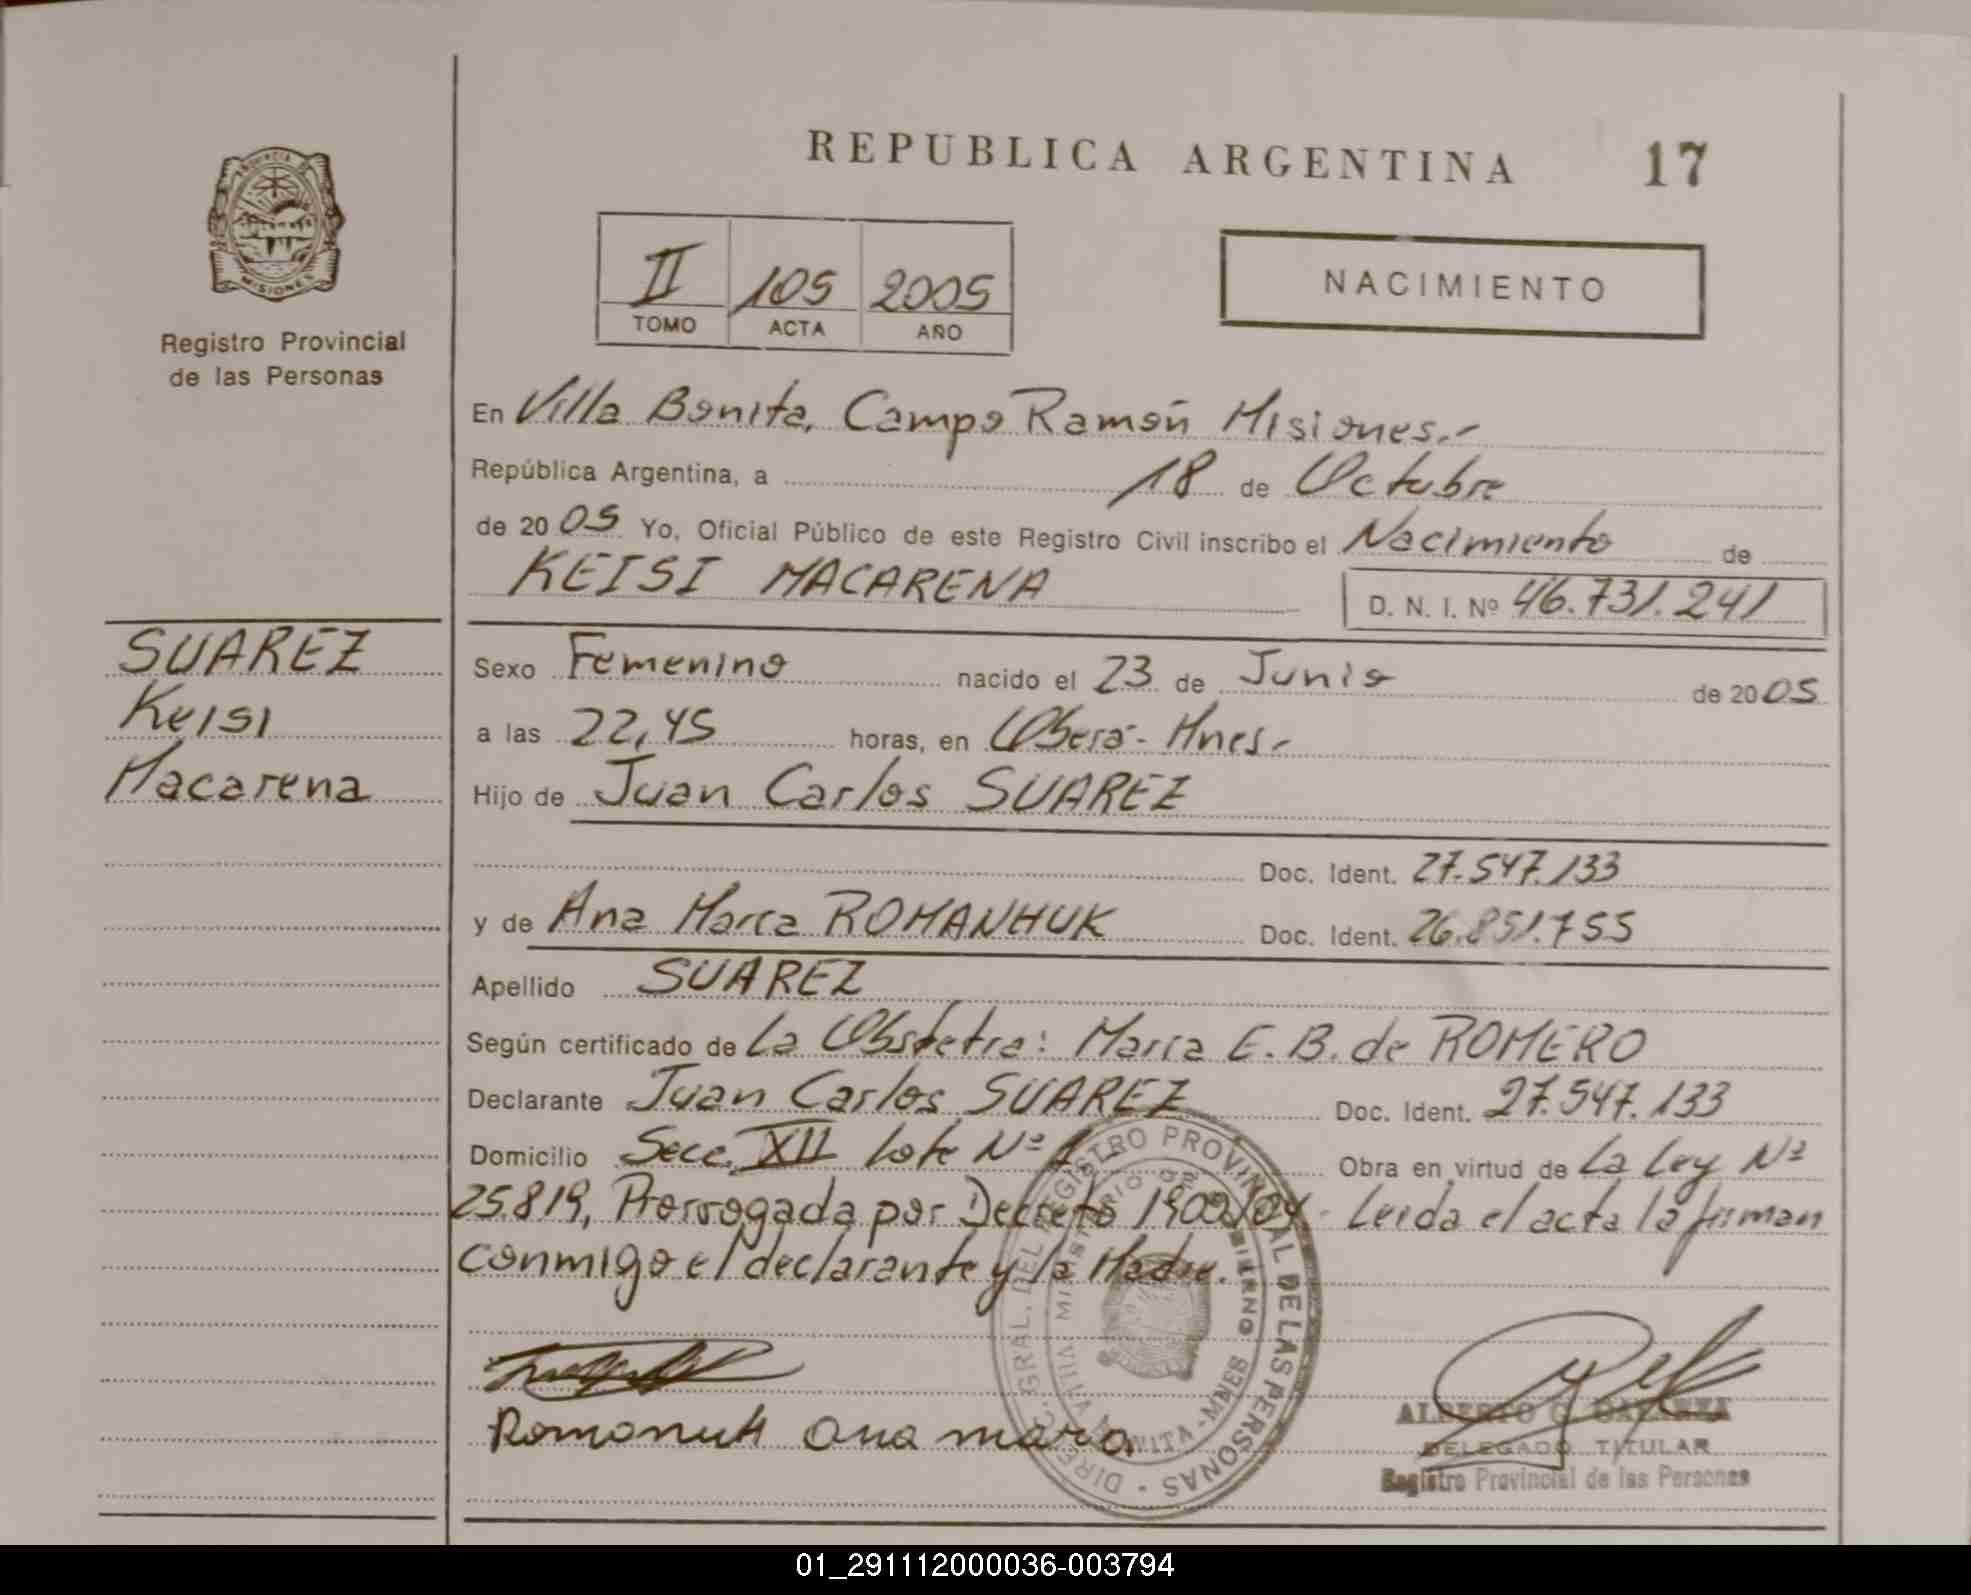 REPUBLICA ARGENTINA 17
PROVINCIA DE
MISIONES
Registro Provincial
de las Personas
II 105 2005
TOMO ACTA AÑO
NACIMIENTO
En Villa Bonita, Campo Ramón Misiones.-
República Argentina, a 18 de Octubre
de 2005 Yo, Oficial Público de este Registro Civil inscribo el Nacimiento de
KEISI MACARENA D. N. I. Nº 46.731.241
SUAREZ
Keisi
Macarena
Sexo Femenino nacido el 23 de Junio de 2005
a las 22,45 horas, en Oberá - Mnes.-
Hijo de Juan Carlos SUAREZ
Doc. Ident. 27.547.133
y de Ana María ROMANHUK Doc. Ident. 26.851.755
Apellido SUAREZ
Según certificado de La Obstetra: María E. B. de ROMERO
Declarante Juan Carlos SUAREZ Doc. Ident. 27.547.133
Domicilio Secc. XII lote Nº 1 Obra en virtud de La Ley Nº
25.819, Prorrogada por Decreto 1900/04 - Leida el acta la firman
conmigo el declarante y la Madre.
DIREC. GRAL. DEL REGISTRO PROVINCIAL DE LAS PERSONAS
MINISTERIO DE GOBIERNO
VILLA BONITA - MNES
Romanuk Ana mara
ALBERTO
DELEGADO TITULAR
Registro Provincial de las Personas
01_291112000036-003794